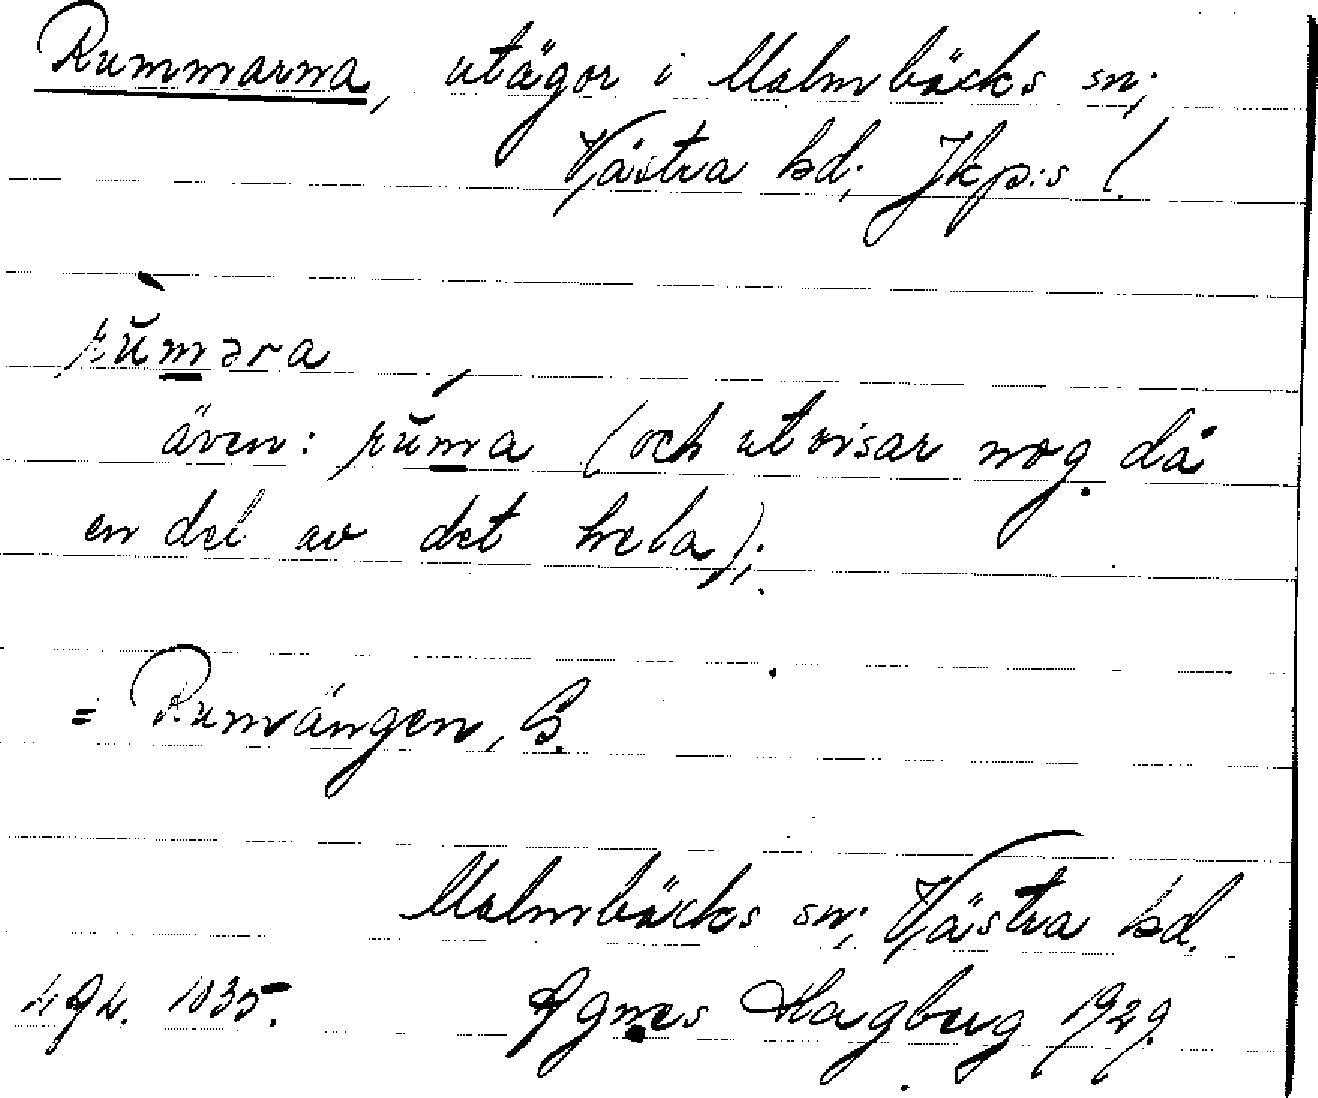 Rummarna, utägor i Malmbäcks sn;
Västra hd; Jkp:s l.
rŭ̀məra
även: rŭ́ma (och utvisar nog då
en del av det hela);
= Rumängen, G.
Malmbäcks sn; Västra hd.
Agnes Hagberg 1929